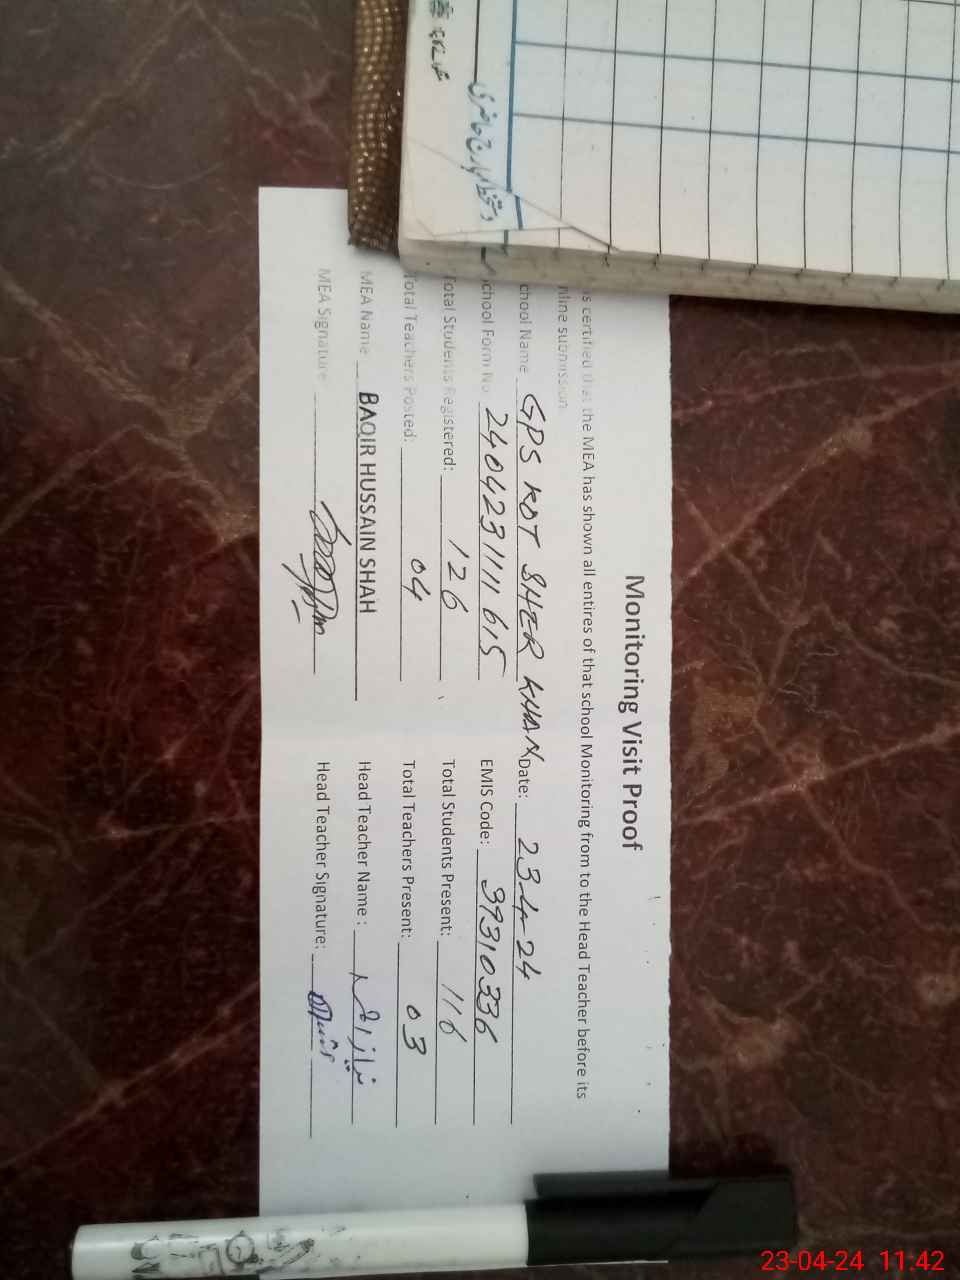 Monitoring Visit Proof
is certified that the MEA has shown all entires of that school Monitoring from to the Head Teacher before its
nline submission
chool Name GPS KOT SHER KHAN Date: 23-4-24
chool Form No 2404231111615 EMIS Code: 37310336
otal Students Registered: 126 Total Students Present: 116
otal Teachers Posted: 04 Total Teachers Present: 03
MEA Name BAQIR HUSSAIN SHAH Head Teacher Name :
MEA Signature Head Teacher Signature:
23-04-24 11:42